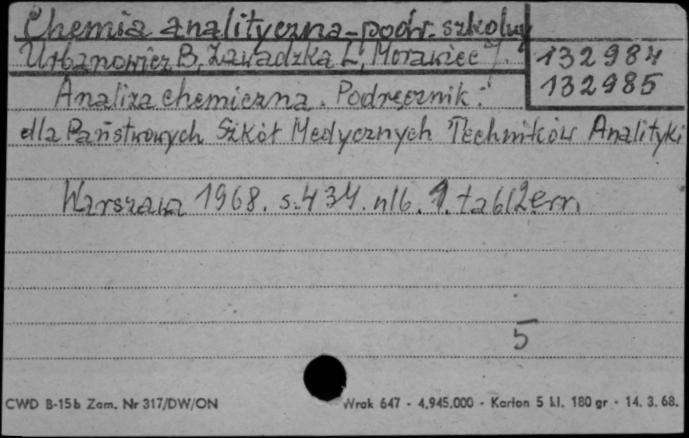 Chemia analityczna-podr. szkolny
Urbanowicz B, Zawadzka L, Morawiec J.
132984
132985
Analiza chemiczna. Podręcznik.
dla Państwowych Szkół Medycznych Techników Analityki
Warszawa 1968. s. 434. nlb. 1. tabl2err.
5
CWD B-15b Zam. Nr 317/DW/ON
Wrak 647 - 4.945.000 - Karton 5 kl. 180 gr - 14. 3. 68.